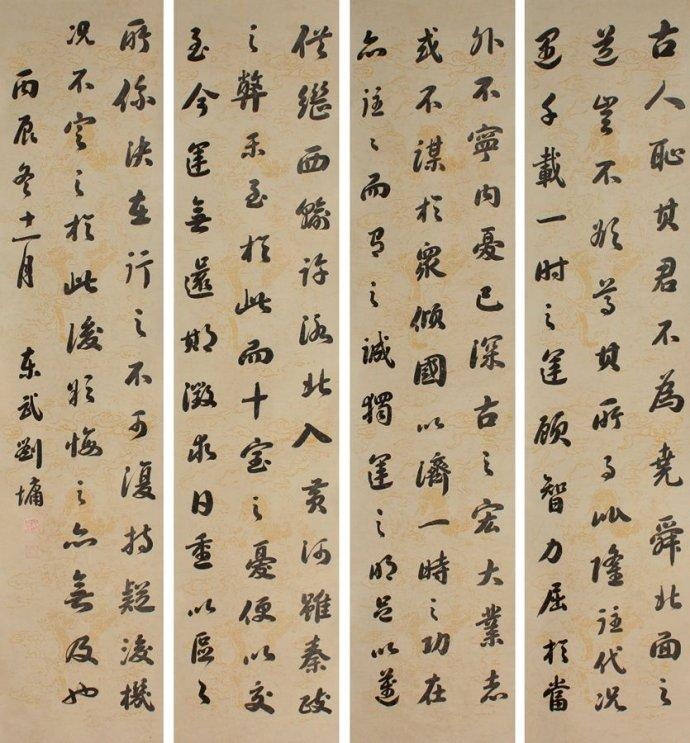 古人恥其君不為堯舜北面之
道豈不願尊其所事比隆往代況
遇千載一時之運顧智力屈於當
外不寧内憂已深古之宏大業者
或不謀於眾傾國以濟一時之功在
亦往之而有之誠獨運之明足以邁
供繼西輸許洛北入黃河雖秦政
之弊未至於此而十室之憂便以交
至今運無還期徵求日重以區之
所係決在行之不可復持疑後機
況不定之於此後欲悔之亦無及也
丙辰冬十一月 東武劉墉